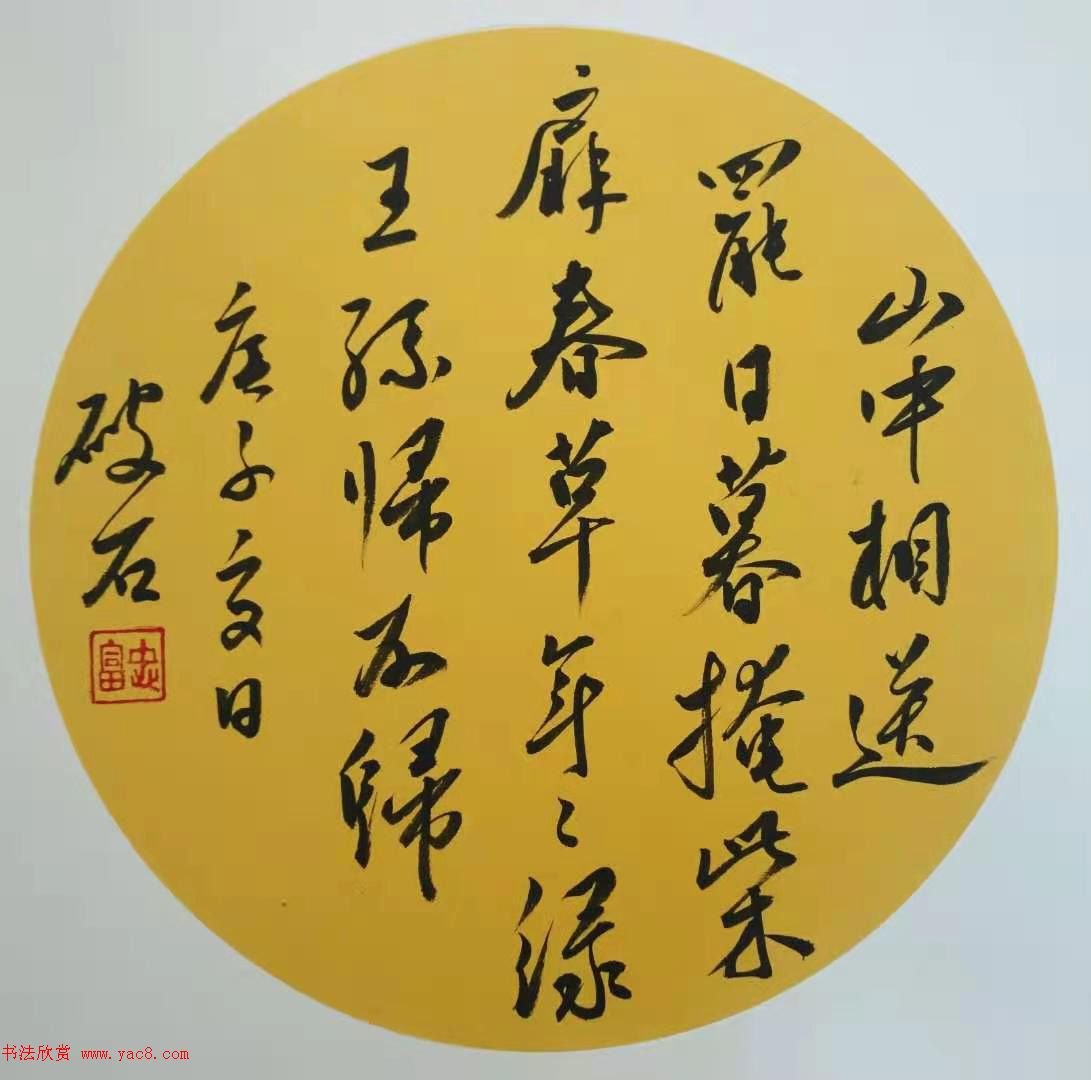 山中相送
罷日暮掩柴
扉春草年々绿
王孫帰不歸
庚子夏日
破石
忠富
书法欣赏 www.yac8.com